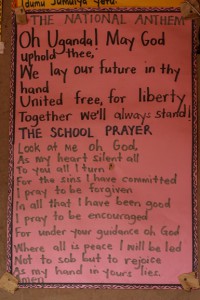 (dumu Jumuiya yetu.
THE NATIONAL ANTHEM
Oh Uganda! May God
uphold thee,
We lay our future in thy
hand
United free, for liberty
Together we'll always stand!
THE SCHOOL PRAYER
Look at me oh God,
As my heart silent all
To you all I turn
For the sins I have committed
I pray to be forgiven
In all that I have been good
I pray to be encouraged
For under your guidance oh God
Where all is peace I will be led
Not to sob but to rejoice
As my hand in yours lies.
Amen